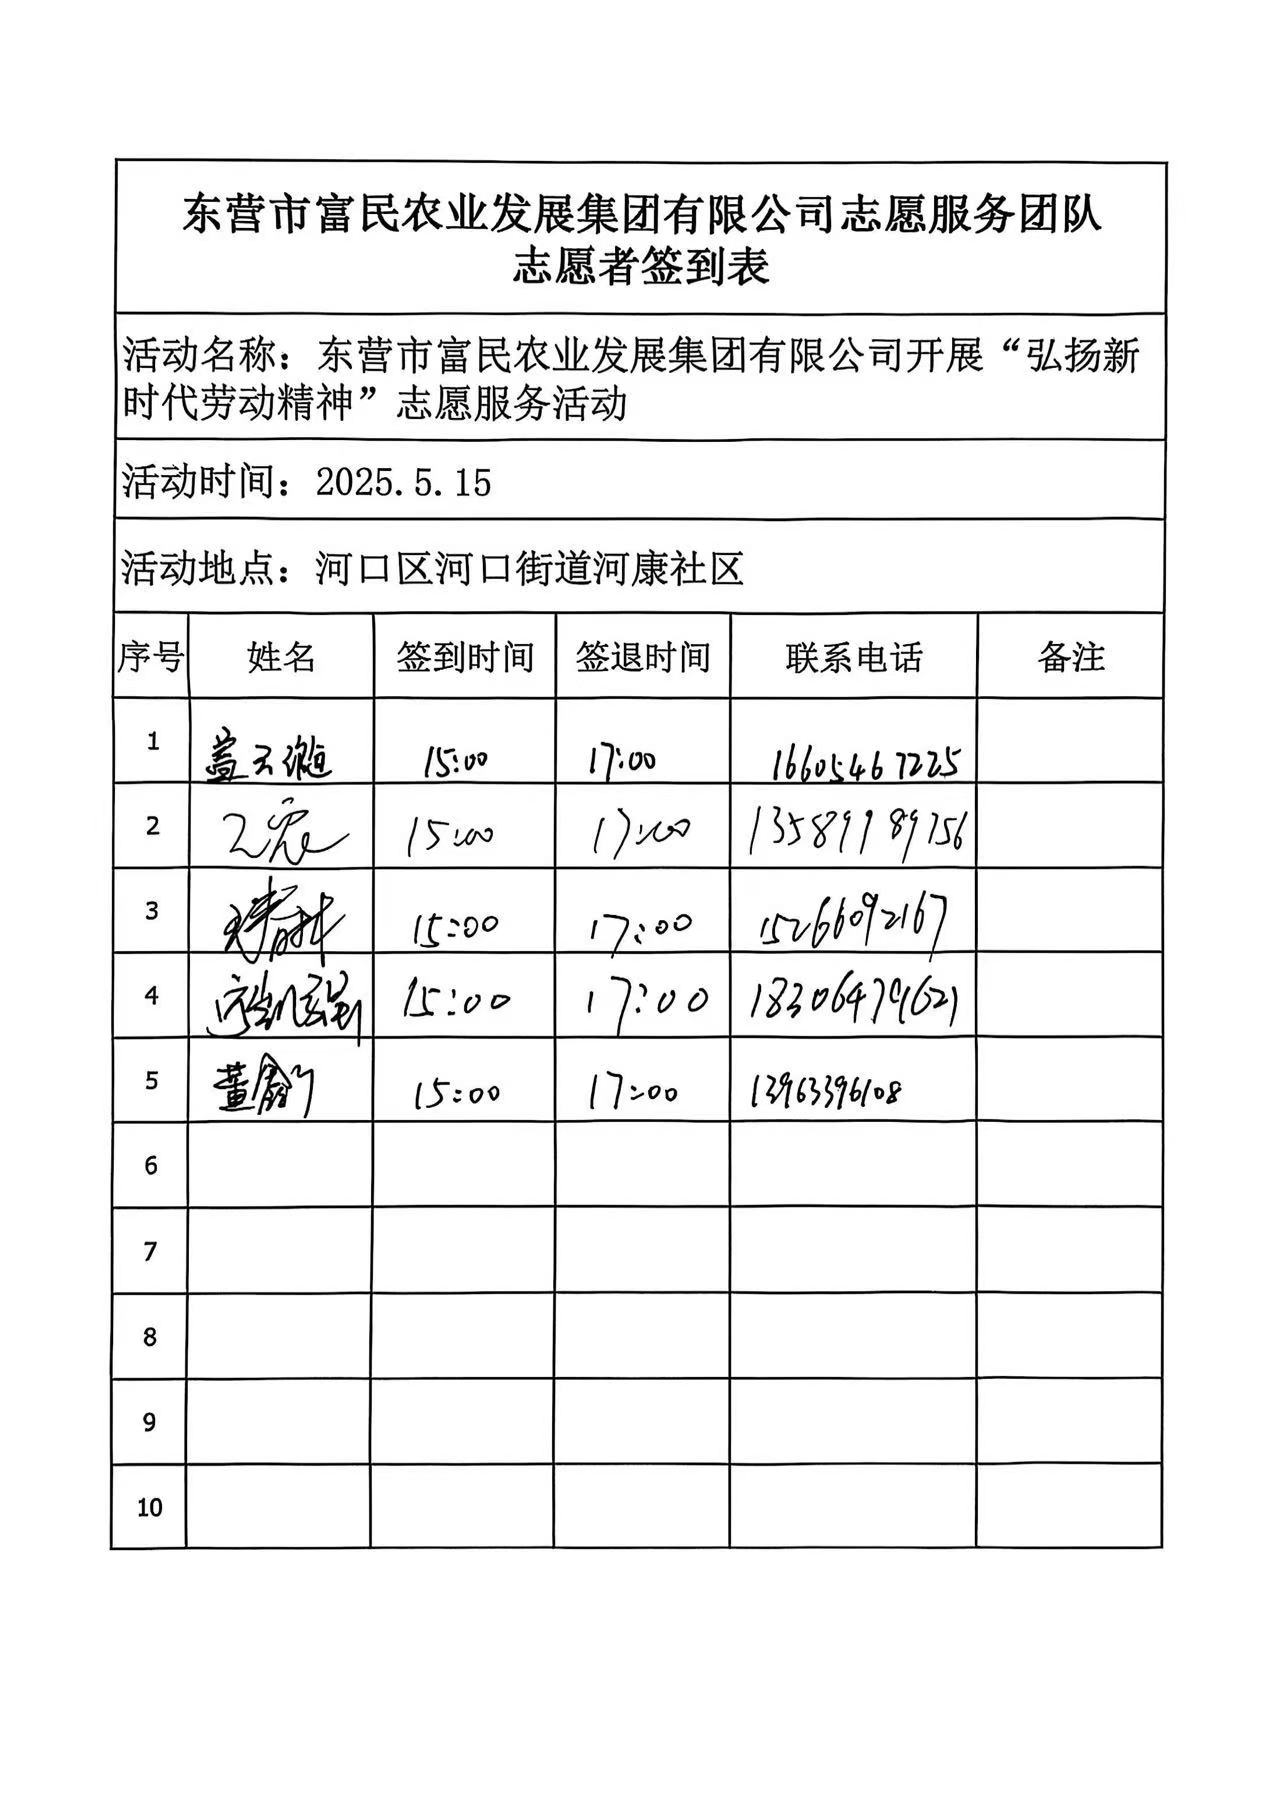 东营市富民农业发展集团有限公司志愿服务团队
志愿者签到表
活动名称：东营市富民农业发展集团有限公司开展“弘扬新
时代劳动精神”志愿服务活动
活动时间：2025.5.15
活动地点：河口区河口街道河康社区
序号 姓名 签到时间 签退时间 联系电话 备注
1 15:00 17:00 16605467225
2 15:00 17:00 13589989756
3 15:00 17:00 15266092167
4 15:00 17:00 18306479621
5 15:00 17:00 13963396108
6
7
8
9
10